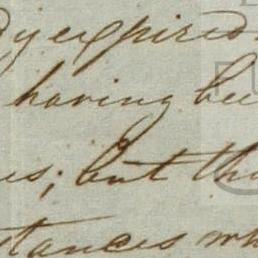 expired
having bee
es; but th
stances wh